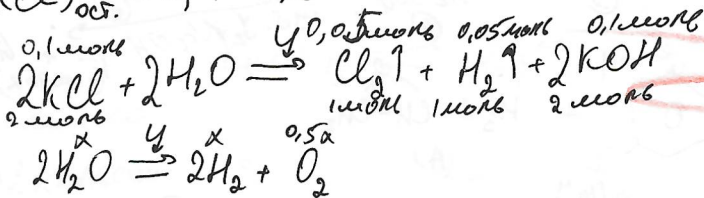 ост.
0,1моль У 0,05моль 0,05моль 0,1моль
2KCl + 2H₂O ⇒ Cl₂↑ + H₂↑ + 2KOH
2моль 1моль 1моль 2моль
x У x 0,5x
2H₂O ⇒ 2H₂ + O₂